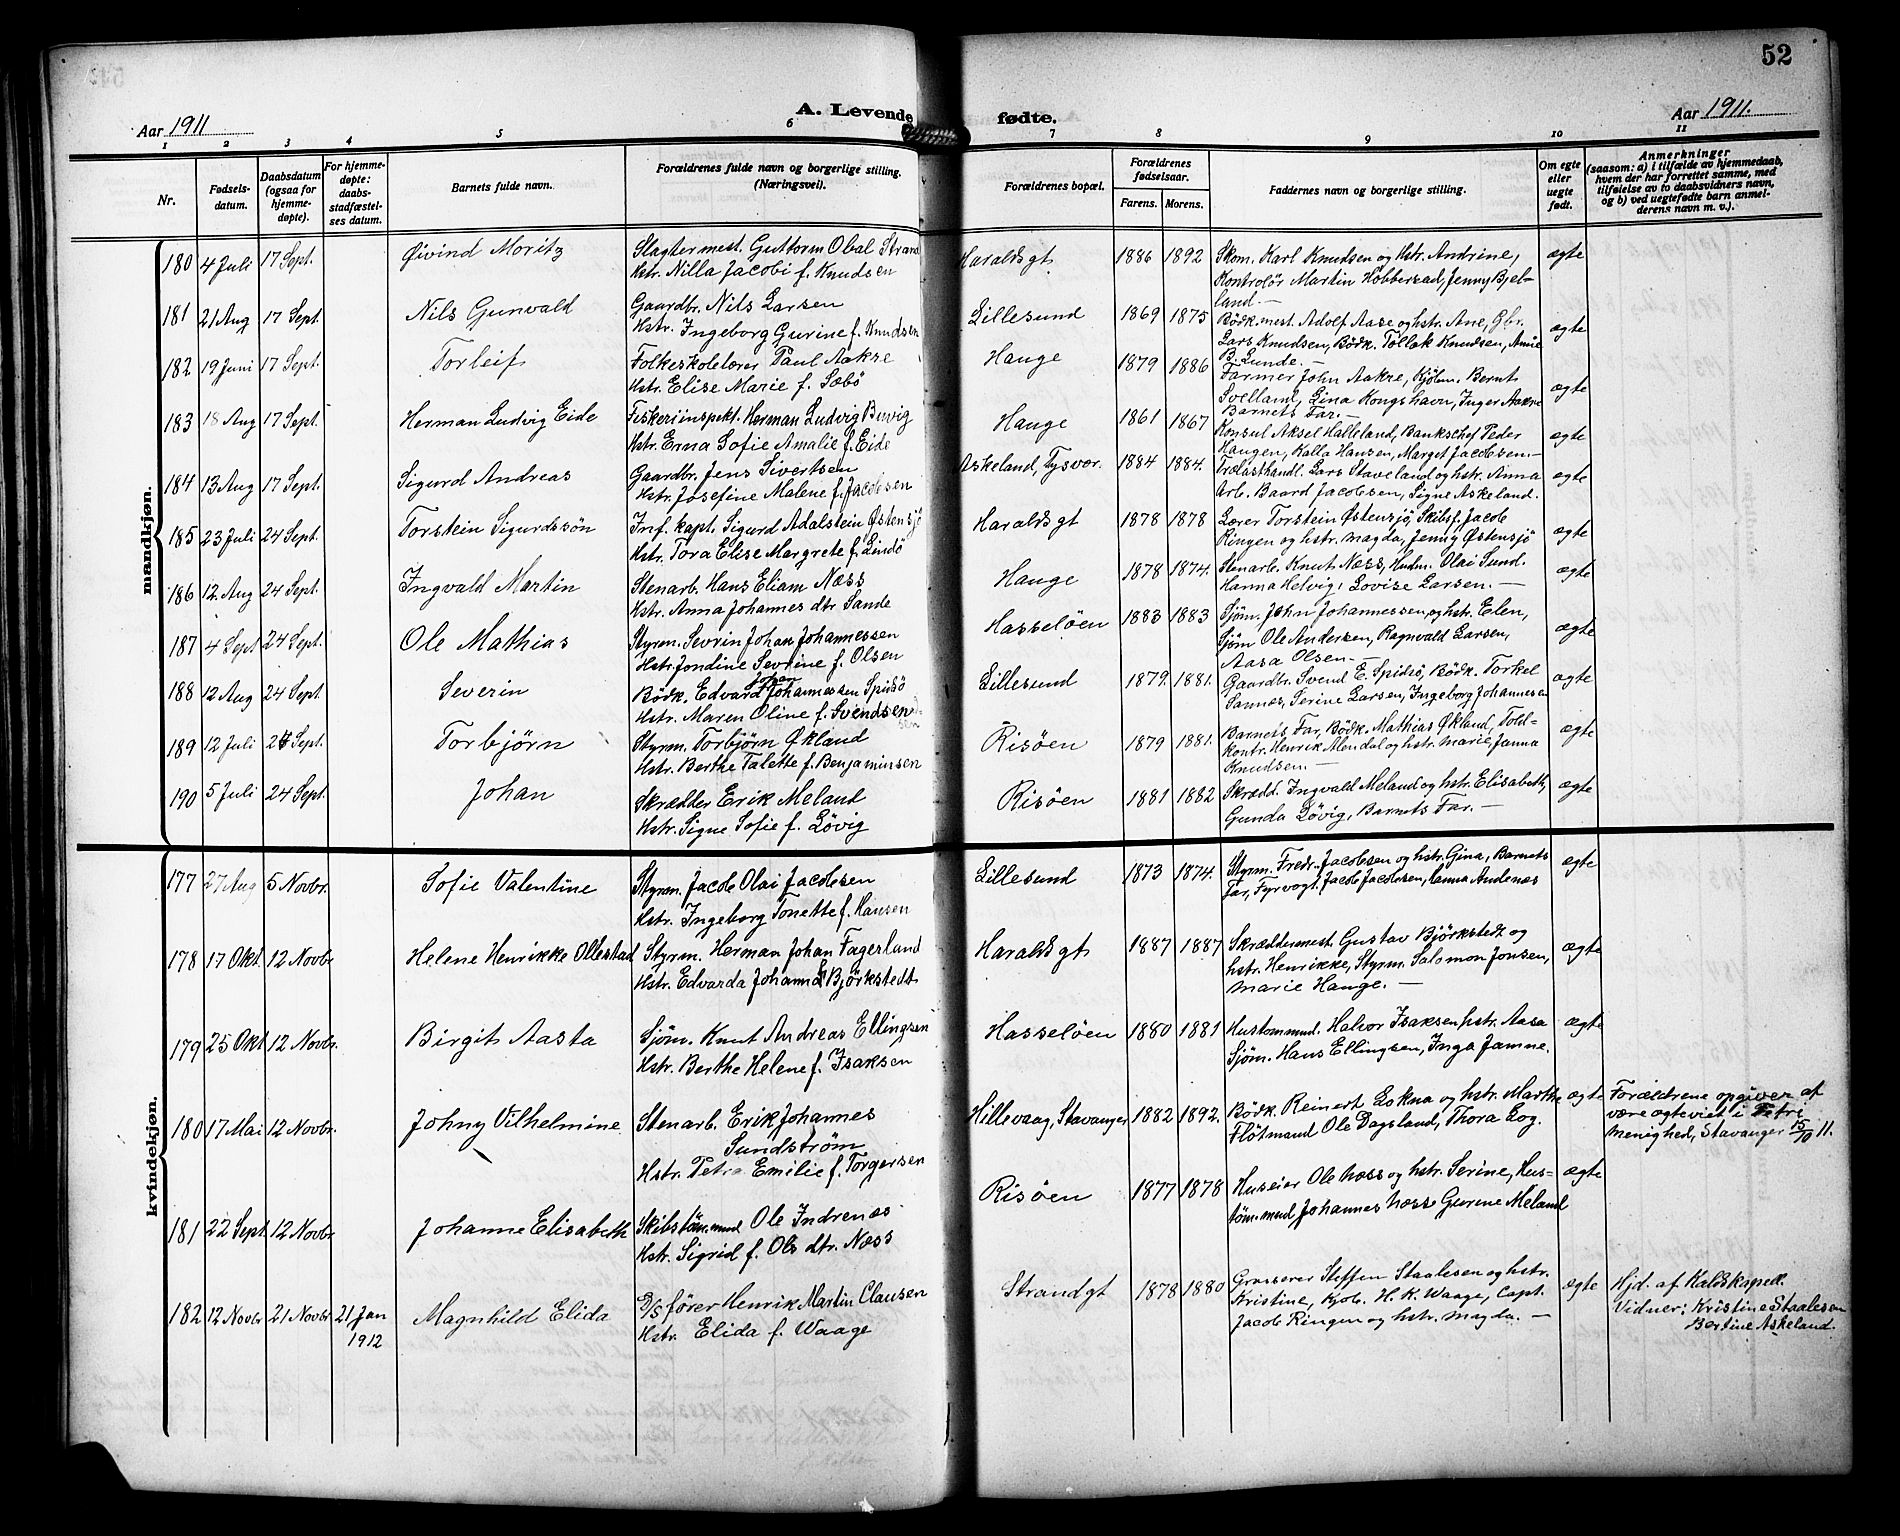 52
Aar 1911
A. Levende fødte.
Aar 1911.
1 2 3 4 5 6 7 8 9 10 11
Nr.
Fødsels-
datum.
Daabsdatum
(ogsaa for
hjemme-
døpte).
For hjemme-
døpte:
daabs-
stadfæstel-
ses datum.
Barnets fulde navn.
Forældrenes fulde navn og borgerlige stilling.
(Næringsvei).
Forældrenes bopæl.
Forældrenes
fødselsaar.
Farens. Morens.
Faddernes navn og borgerlige stilling.
Om egte
eller
uegte
født.
Anmerkninger
(saasom: a) i tilfælde av hjemmedaab,
hvem der har forrettet samme, med
tilføielse av to daabsvidners navn,
og b) ved uegtefødte barn anmel-
derens navn m. v.).
mandkjøn.
180 4 Juli 17 Sept. Øivind Moritz
Slagtermest. Guttorm Obal Strand
Hstr. Nilla Jacobi f. Knudsen
Haraldsgt 1886 1892
Skom. Karl Knudsen og Hstr. Andrine,
Kontrolör Martin Hobberstad, Jenny Bjel-
land. —
ægte
181 21 Aug 17 Sept. Nils Gunvald
Gaardbr. Nils Larsen
Hstr. Ingeborg Gurine f. Knudsen
Lillesund 1869 1875
Bödk. mest. Adolf Aase og hstr. Ane, Gbr.
Lars Knudsen, Bödk. Tollak Knudsen, Anne
B. Lunde. —
ægte
182 19 Juni 17 Sept. Torleif
Folkeskolelærer Paul Aakre
Hstr. Elise Marie f. Sæbö
Hauge 1879 1886
Farmer John Aakre, Kjöbm. Bernt
Svelland, Gina Kongshavn, Inger Aakre
Barnets Far. —
ægte
183 18 Aug 17 Sept. Herman Ludvig Eide
Fiskeriinspekt. Herman Ludvig Buvig
Hstr. Erna Sofie Amalie f. Eide
Hauge 1861 1867
Konsul Aksel Halleland, Bankschef Peder
Haugen, Kalla Hansen, Marget Jacobsen. —
ægte
184 13 Aug 17 Sept. Sigurd Andreas
Gaardbr. Jens Sivertsen
Hstr. Josefine Malene f. Jacobsen
Askeland, Tysvær. 1884 1884.
Trælasthandl. Lars Staveland og hstr. Anna
Arb. Baard Jacobsen, Signe Askeland.
ægte
185 23 Juli 24 Sept. Torstein Sigurdssön
Inf. kapt. Sigurd Adalstein Østensjö
Hstr. Tora Elise Margrete f. Lindö
Haraldsgt 1878 1878
Lærer Torstein Østensjö, Skibsf. Jacob
Ringen og hstr. Magda, Jenny Østensjö
ægte
186 12. Aug 24 Sept. Ingvald Martin
Stenarb. Hans Eliam Næss
Hstr. Anna Johannes dtr Sande
Hauge 1878 1874.
Stenarb. Knut Næss, Husm. Olai Sund.
Hanna Helvig, Lovise Larsen. —
ægte
187 4 Sept 24 Sept. Ole Mathias
Styrm. Sevrin Johan Johannessen
Hstr. Jondine Sevrine f. Olsen
Hasselöen 1883 1883
Sjöm. John Johannessen, og hstr. Elen,
Sjöm Ole Andersen, Ragnvald Larsen,
Aasa Olsen. —
ægte
188 12 Aug 24 Sept. Severin
Bödk. Edvard Johan Johannessen Spidsö
Hstr. Maren Oline f. Svendsen
Lillesund 1879. 1881.
Gaardbr. Svend E. Spidsö, Bödk. Torkel
Sannæs, Serine Larsen, Ingeborg Johannesen
ægte
189 12 Juli 24 Sept. Torbjørn
Styrm. Torbjørn Økland
Hstr. Berthe Talette f. Benjaminsen
Risöen 1879 1881.
Barnets Far, Bödk. Mathias Økland, Told-
kontr. Henrik Alendal og hstr. Marie, Janna
Knudsen. —
ægte
190 5 Juli 24 Sept. Johan
Skrædder Erik Meland
Hstr. Signe Sofie f. Lövig
Risöen 1881 1882
Skrædd. Ingvald Meland og hstr. Elisabeth,
Gunda Lövig, Barnets Far. —
ægte
kvindekjøn.
177 27 Aug 5 Novbr. Sofie Valentine
Styrm. Jacob Olai Jacobsen
Hstr. Ingeborg Tonette f. Hansen
Lillesund 1873 1874.
Styrm. Fredr. Jacobsen og hstr. Gina, Barnets
Far, Fyrvogt. Jacob Jacobsen, Hanna Andenæs
ægte
178 17 Okt 12 Novbr Helene Henrikke Ollestad
Styrm. Herman Johan Fagerland
Hstr. Edvarda Johanna Björkstedt
Haraldsgt 1887 1887
Skræddermest. Gustav Björkstedt og
hstr. Henrikke, Styrm. Salomon Jonsen,
Marie Hauge. —
ægte
179 25 Okt 12 Novbr. Birgit Aasta
Sjöm. Knut Andreas Ellingsen
Hstr. Berthe Helene f. Isaksen
Hasselöen 1880 1881
Hustømmd. Halvor Isaksen hstr. Aasa
Sjöm. Hans Ellingsen, Inga Jamne.
ægte
180 17 Mai 12 Novbr. Johny Vilhelmine
Stenarb. Erik Johannes
Sundström
Hstr. Petra Emilie f. Torgersen
Hillevaag, Stavanger 1882 1892.
Bödk. Reinert Lokna og hstr. Marthe
Flötmand Ole Dagsland, Thora Log.
ægte
Forældrene opgiver at
være ægteviet i Petri
menighed, Stavanger 15/10 11.
181 22 Sept. 12 Novbr. Johanne Elisabeth
Skibstöm.mnd Ole Indrenæs
Hstr. Sigrid f. Ols dtr. Næss
Risöen 1877 1878
Huseier Ole Næss og hstr. Serine, Hus-
töm. mnd Johannes Næss Gurine Meland
ægte
182 12 Novbr 21 Novbr 21 Jan
1912
Magnhild Elida
D/S förer Henrik Martin Clausen
Hstr. Elida f. Waage
Strandgt 1878 1880
Grosserer Steffen Staalesen og hstr.
Kristine, Kjöb. H. K. Waage, Capt.
Jacob Ringen og hstr. Magda. —
ægte
Hjd. af Kaldskaped.
Vidner: Kristine Staalesen
Bertine Askeland.